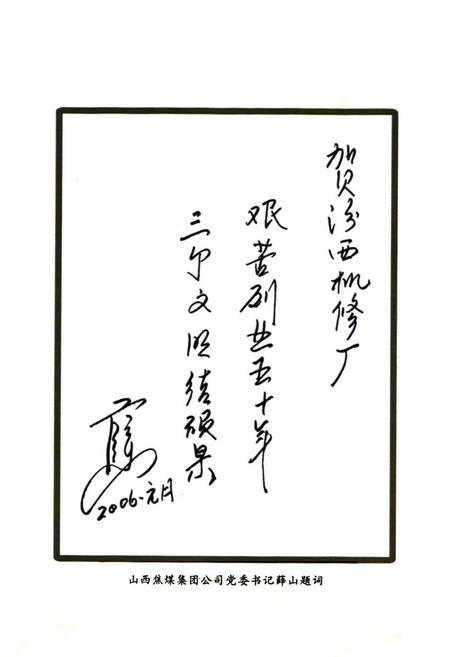 贺汾西机修厂
艰苦创业五十年
三个文明结硕果
2006.元月
山西焦煤集团公司党委书记薛山题词